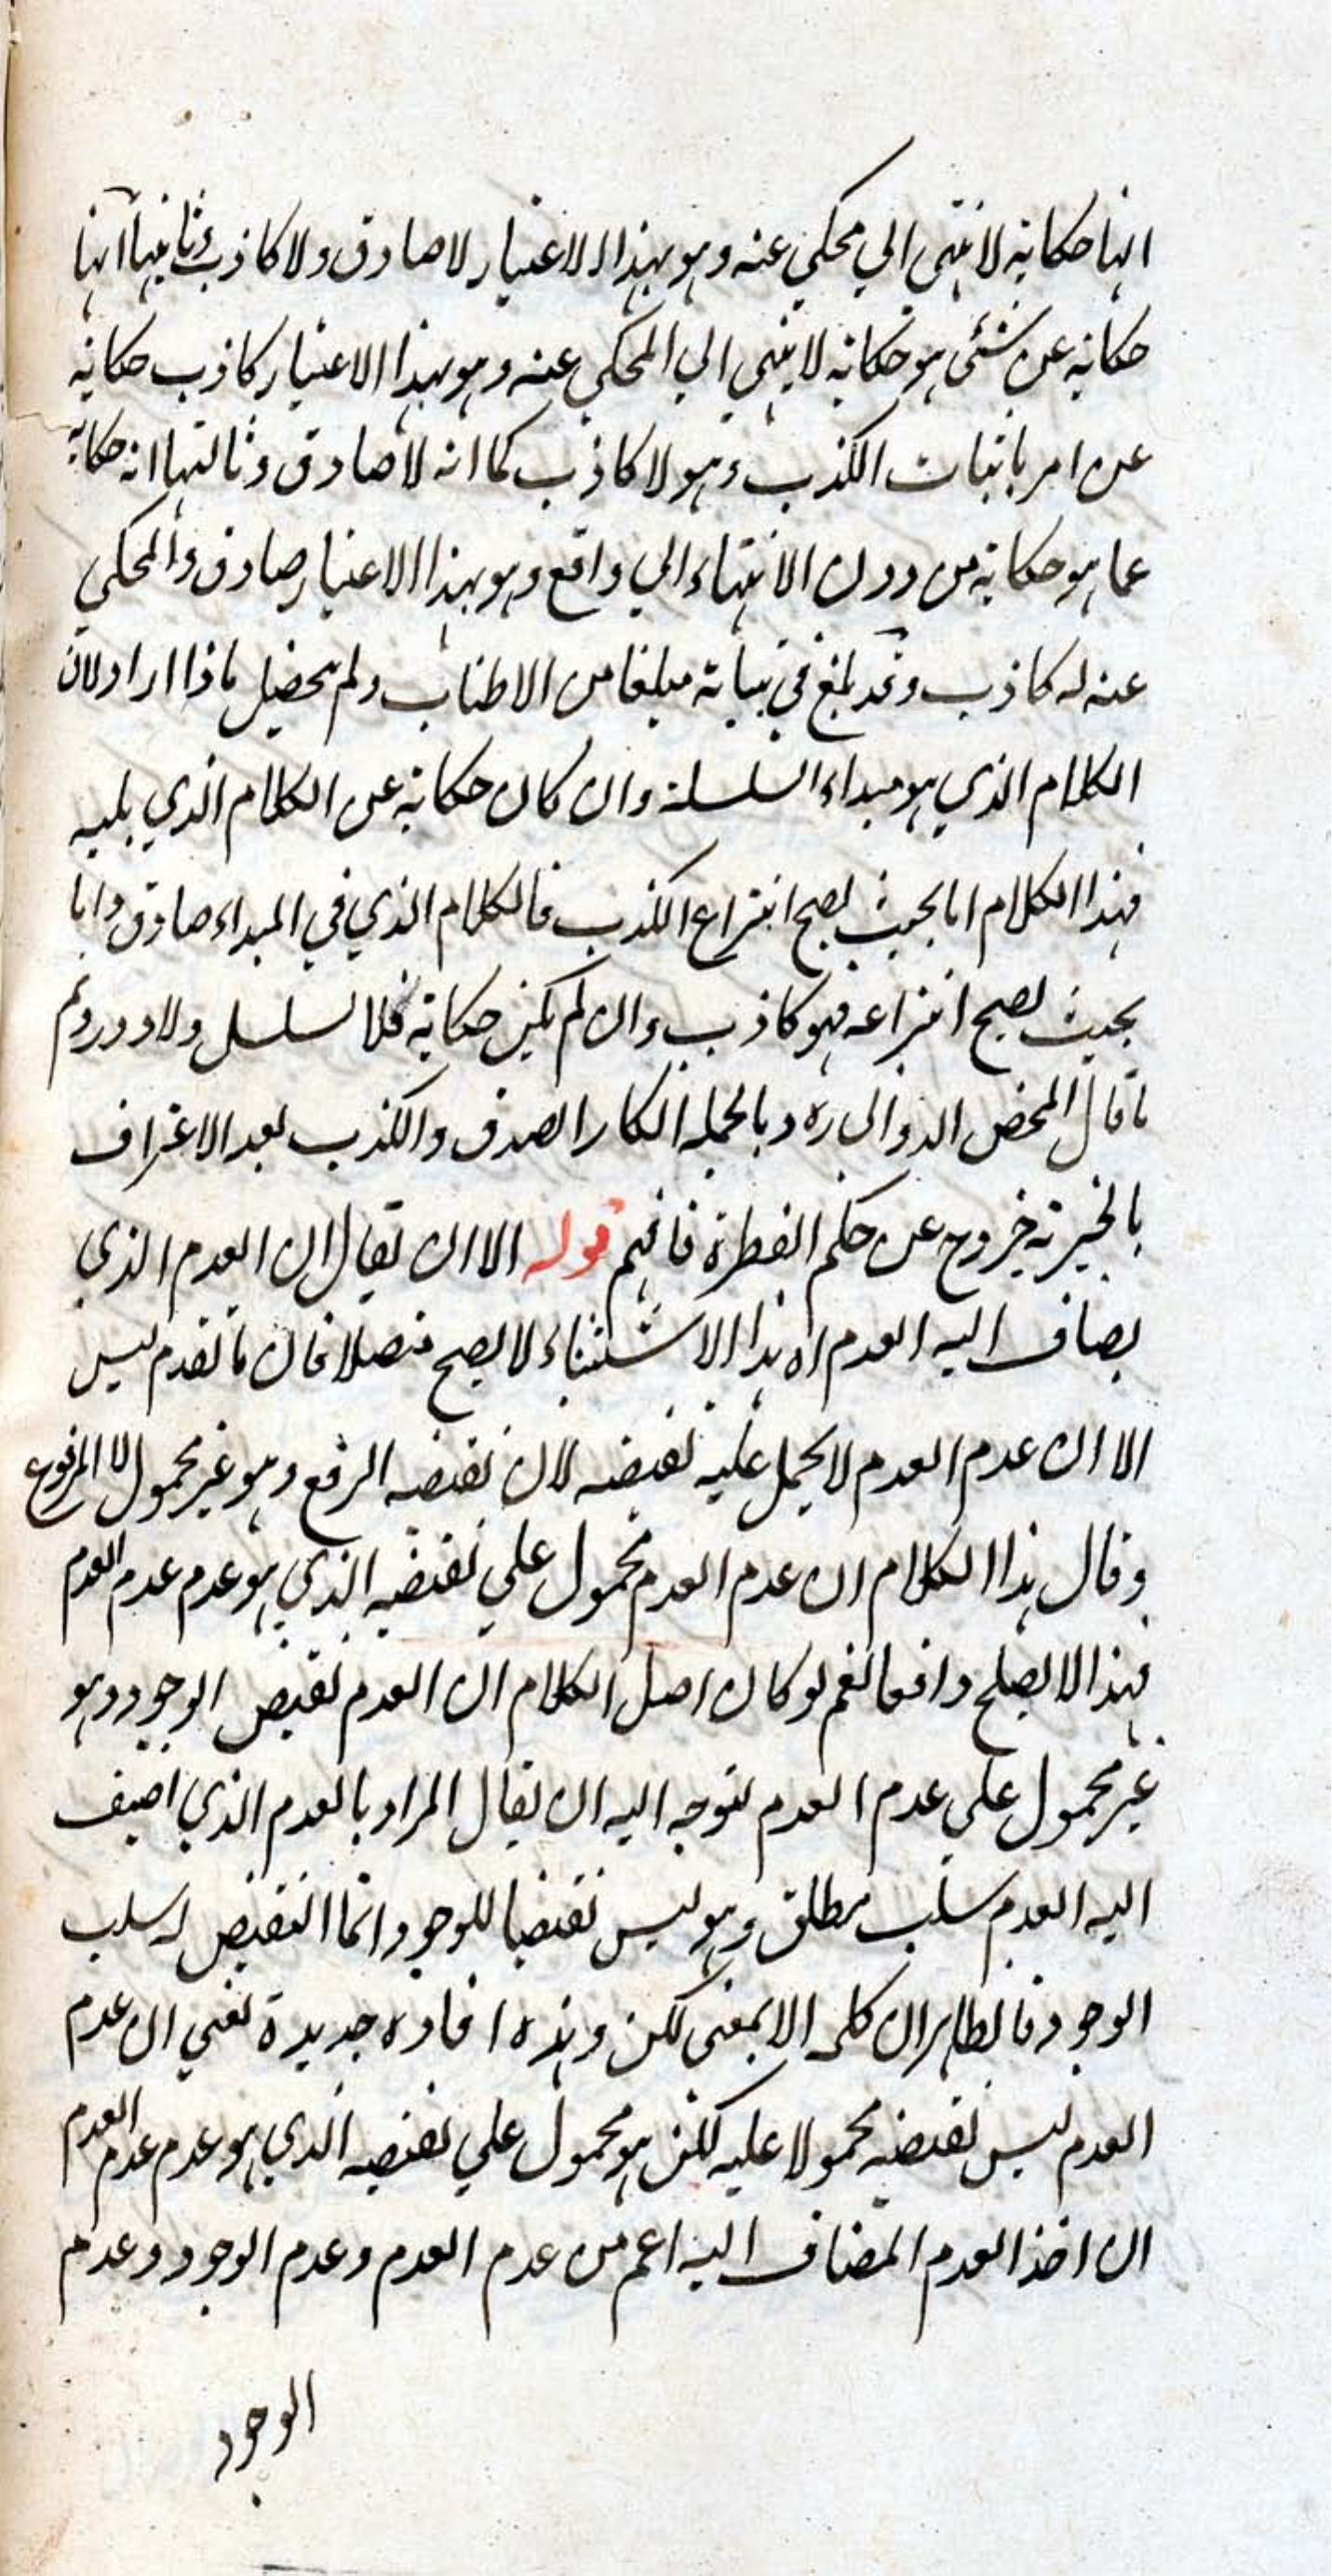 انها حكاية لا تنتهي الي محكي عنه وهو بهذا الاعتبار لا صادق ولا كاذب وثانيها انها
حكاية عن شئي هو حكاية لا ينتهي الي المحكي عنه وهو بهذا الاعتبار كاذب حكاية
عن امر باثبات الكذب وهو لا كاذب كما انه لا صادق وثالثها انه حكاية
عما هو حكاية من دون الانتهاء الي واقع وهو بهذا الاعتبار صادق والمحكي
عنه له كاذب وقد بلغ في بيانه مبلغا من الاطناب ولم يحصل ماذا اراد لان
الكلام الذي هو مبداء السلسلة وان كان حكاية عن الكلام الذي يليه
فهذا الكلام اما بحيث يصح انتزاع الكذب فالكلام الذي في المبداء صادق واما
بحيث يصح انتزاعه فهو كاذب وان لم يكن حكاية فلا تسلسل ولا دور ونعم
ما قال المحض الدواني ره وبالجملة انكار الصدق والكذب بعد الاعتراف
بالخبرية خروج عن حكم الفطرة فافهم قوله الا ان يقال ان العدم الذي
يضاف اليه العدم اه هذا الاستثناء لا يصح متصلا فان ما تقدم ليس
الا ان عدم العدم لا يحمل عليه نقيضه لان نقيضه الرفع وهو غير محمول لا المرفوع
وقال هذا الكلام ان عدم العدم محمول علي نقيضه الذي هو عدم عدم العدم
فهذا لا يصلح دافعا نعم لو كان اصل الكلام ان العدم نقيض الوجود وهو
غير محمول علي عدم العدم لتوجه اليه ان يقال المراد بالعدم الذي اضيف
اليه العدم سلب مطلق وهو ليس نقيضا للوجود وانما النقيض له سلب
الوجود فالظاهر ان كلمه الا بمعنى لكن وهذه افادة جديدة تعني ان عدم
العدم ليس نقيضه محمولا عليه لكن هو محمول علي نقيضه الذي هو عدم عدم العدم
ان اخذ العدم المضاف اليه اعم من عدم العدم وعدم الوجود وعدم
الوجود